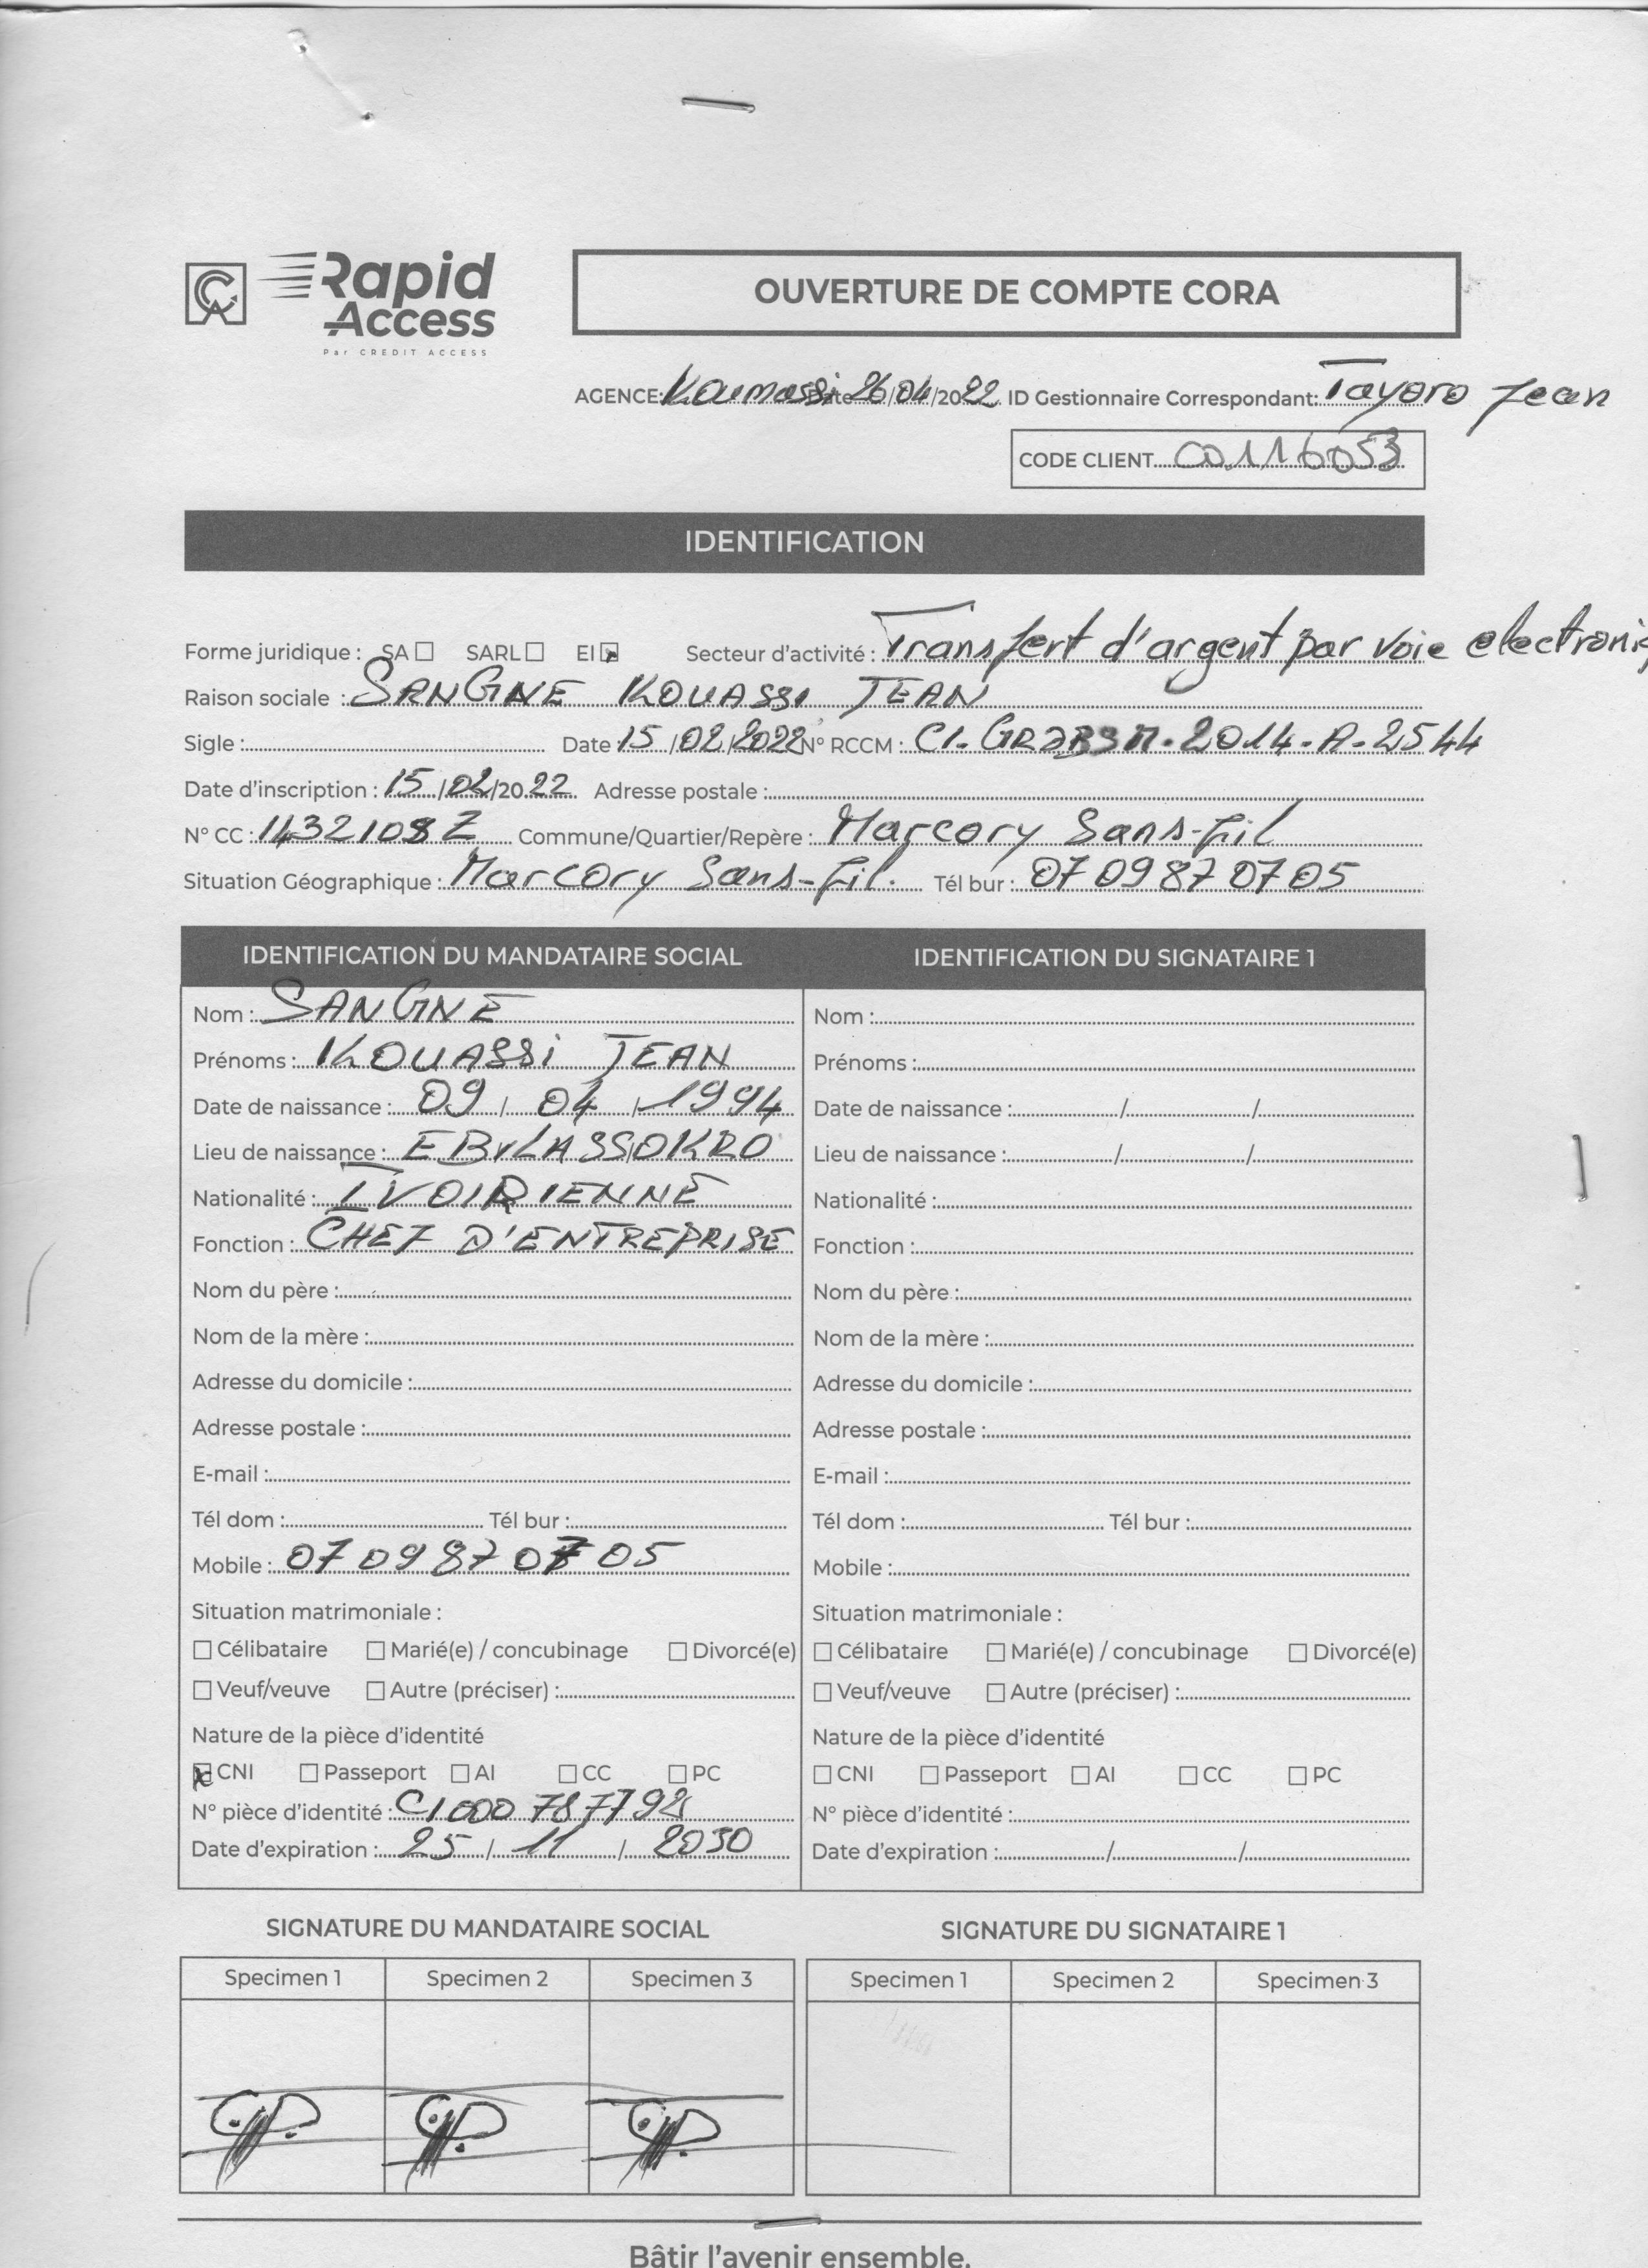 Rapid
Access
Par CREDIT ACCESS
OUVERTURE DE COMPTE CORA
AGENCE: Koumassi Date 26/04/2022 ID Gestionnaire Correspondant: Tayoro Jean
CODE CLIENT 00116053
IDENTIFICATION
Forme juridique : SA SARL EI Secteur d'activité : Transfert d'argent par voie electroniq
Raison sociale : SANGNE KOUASSI JEAN
Sigle : Date 15/02/2022 N° RCCM :
Date d'inscription : 15/02/2022 Adresse postale :
N° CC : 1432108 Z Commune/Quartier/Repère : Marcory Sans-fil
Situation Géographique : Marcory Sans-fil. Tél bur : 07 09 87 07 05
IDENTIFICATION DU MANDATAIRE SOCIAL IDENTIFICATION DU SIGNATAIRE 1
Nom : SANGNE Nom :
Prénoms : KOUASSI JEAN Prénoms :
Date de naissance : 09 / 04 / 1994 Date de naissance : / /
Lieu de naissance : Lieu de naissance : / /
Nationalité : IVOIRIENNE Nationalité :
Fonction : CHEF D'ENTREPRISE Fonction :
Nom du père : Nom du père :
Nom de la mère : Nom de la mère :
Adresse du domicile : Adresse du domicile :
Adresse postale : Adresse postale :
E-mail : E-mail :
Tél dom : Tél bur : Tél dom : Tél bur :
Mobile : 07 09 87 07 05 Mobile :
Situation matrimoniale : Situation matrimoniale :
Célibataire Marié(e) / concubinage Divorcé(e) Célibataire Marié(e) / concubinage Divorcé(e)
Veuf/veuve Autre (préciser) : Veuf/veuve Autre (préciser) :
Nature de la pièce d'identité Nature de la pièce d'identité
CNI Passeport AI CC PC CNI Passeport AI CC PC
N° pièce d'identité : N° pièce d'identité :
Date d'expiration : 25 / 11 / 2030 Date d'expiration : / /
SIGNATURE DU MANDATAIRE SOCIAL SIGNATURE DU SIGNATAIRE 1
Specimen 1 Specimen 2 Specimen 3 Specimen 1 Specimen 2 Specimen 3
Bâtir l'avenir ensemble.